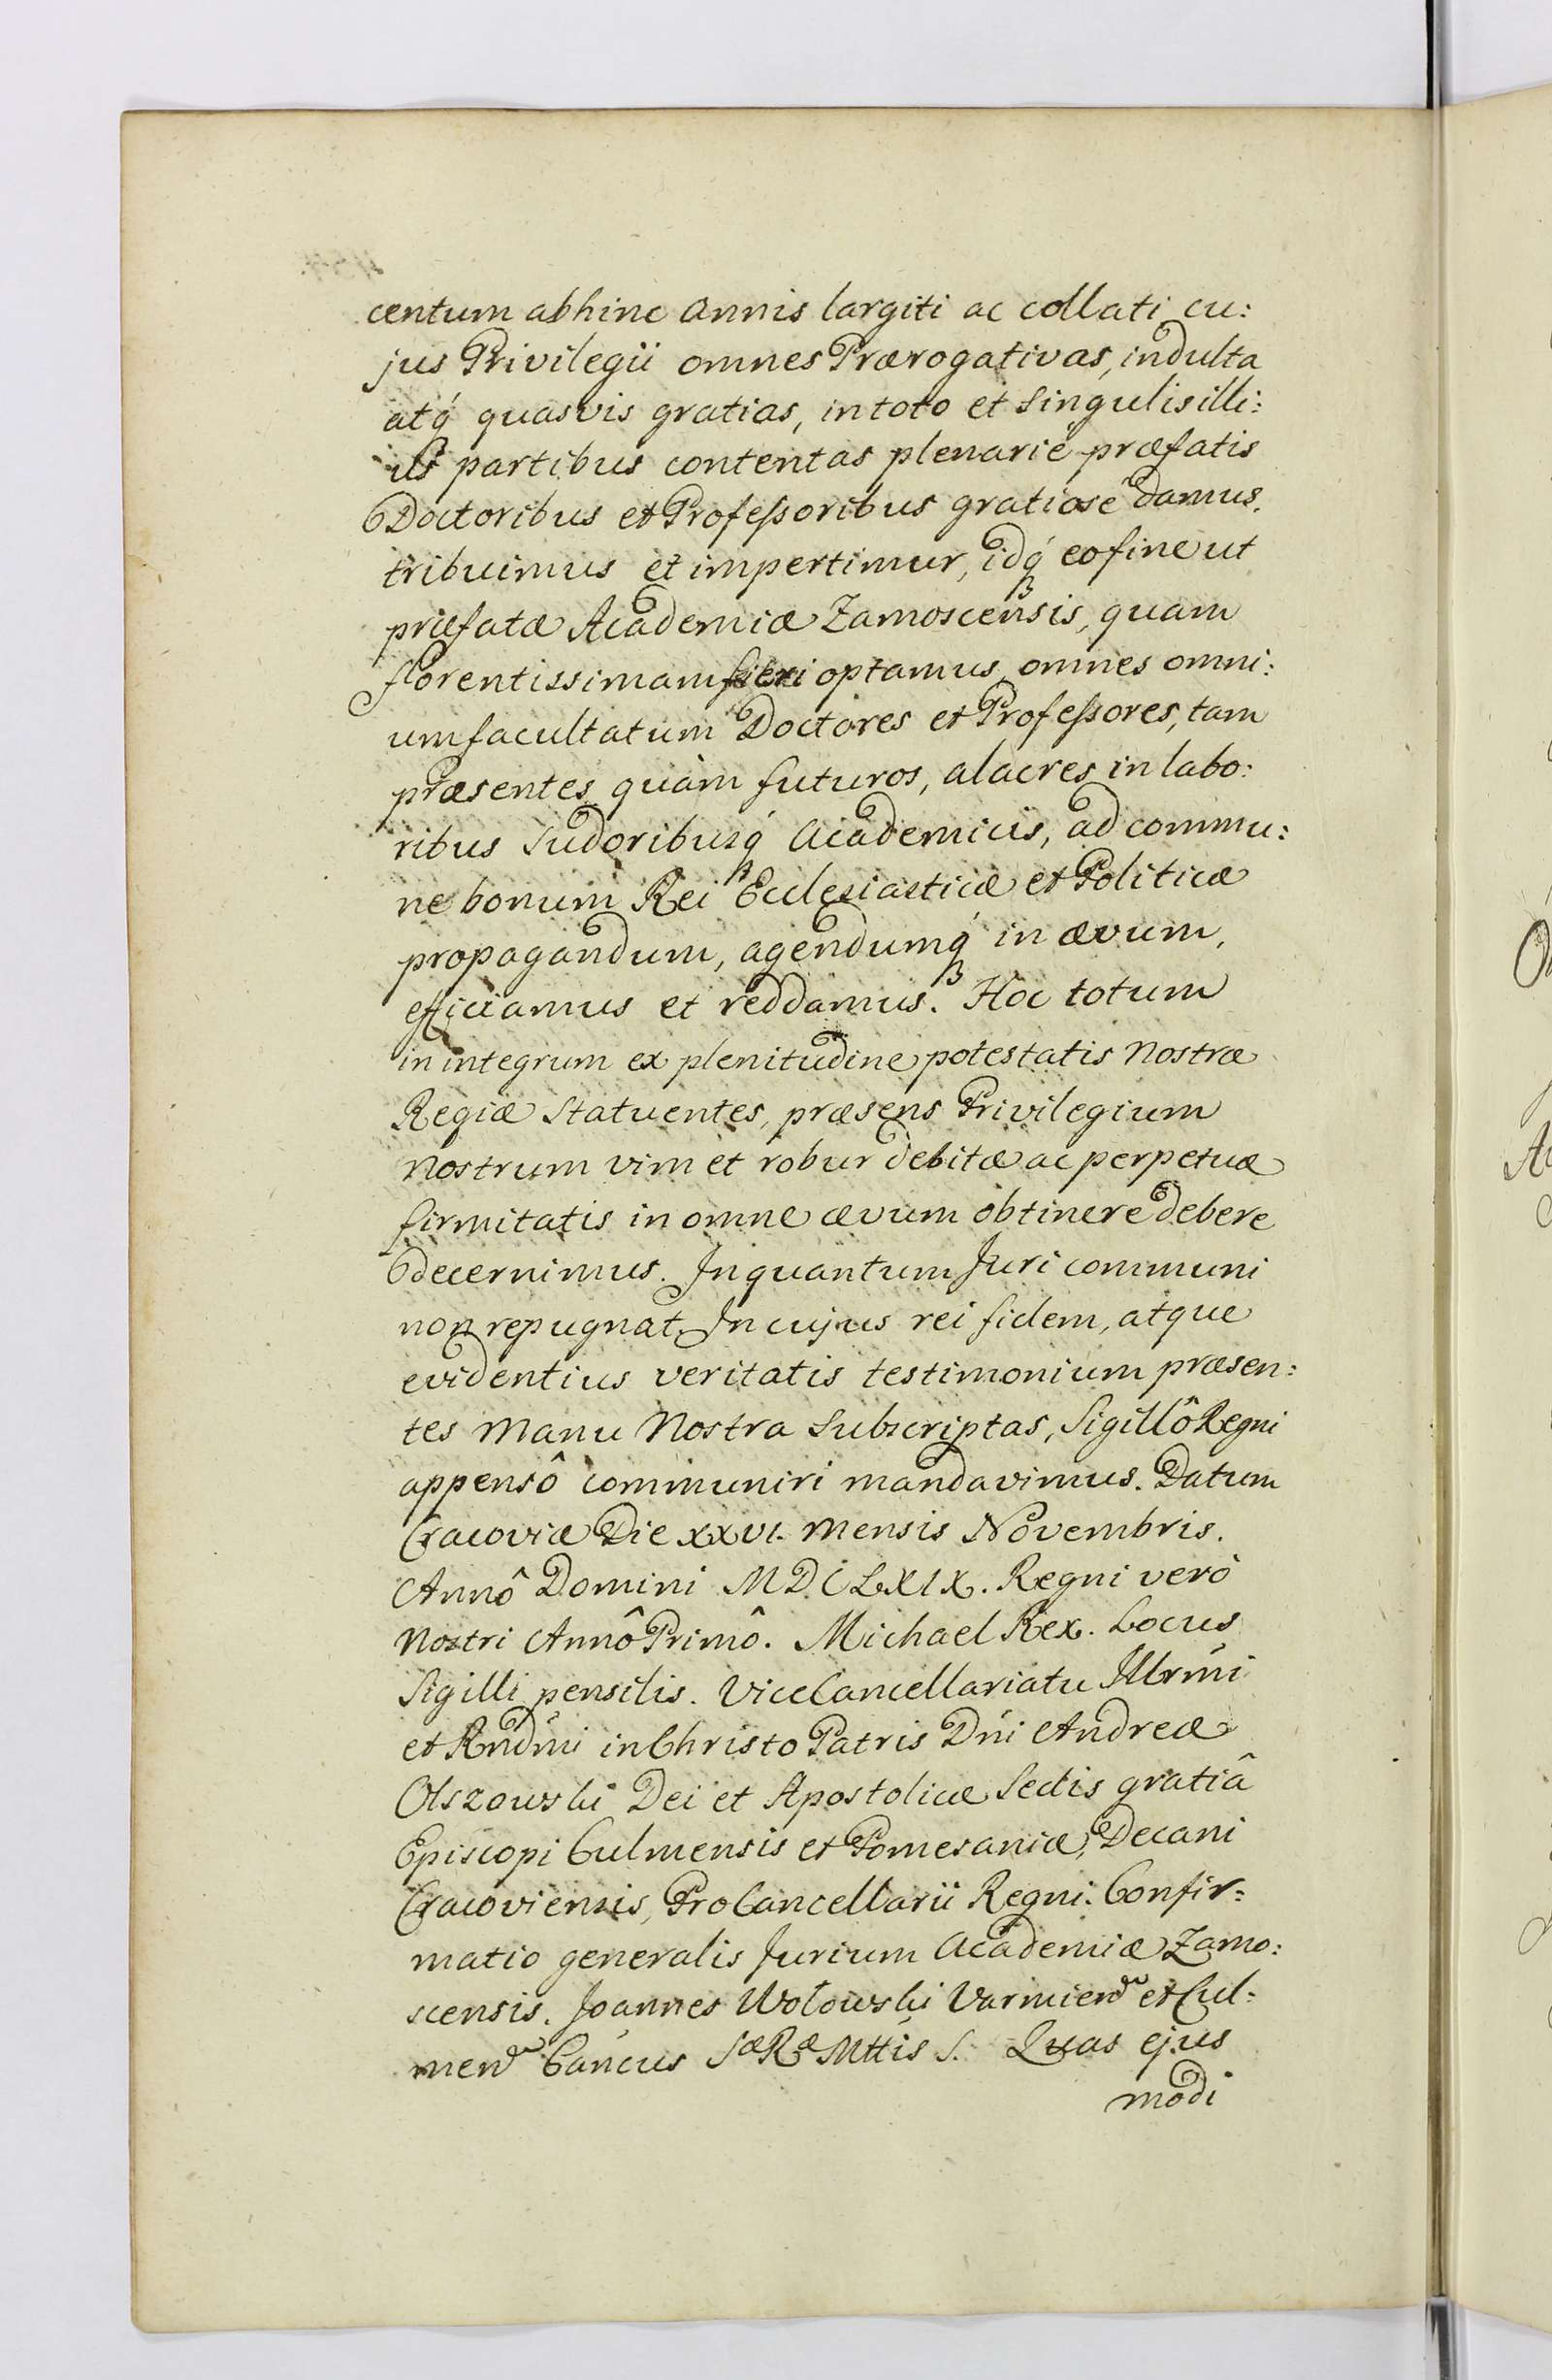 centum abhinc annis largiti ac collati cu:
jus Privilegii omnes Prærogativas, indulta
atq́ quasvis gratias, in toto et singulis illi:
us partibus contentas plenariè præfatis
Doctoribus et Professoribus gratiosè damus,
tribuimus et impertimur, idq́ eo fine ut
præfatæ Academiæ Zamoscensis, quam
florentissimam fieri optamus, omnes omni:
um facultatum Doctores et Professores, tam
præsentes quàm futuros, alacres in labo:
ribus sudoribusq́ Academicis, ad commu:
ne bonum Rei Ecclesiasticæ et Politicæ
propagandum, agendumq́ in ævum,
efficiamus et reddamus. Hoc totum
in integrum ex plenitudine potestatis Nostræ
Regiæ statuentes, præsens Privilegium
Nostrum vim et robur debitæ ac perpetuæ
firmitatis in omne ævum obtinere debere
decernimus. In quantum Juri communi
non repugnat. In cujus rei fidem, atque
evidentius veritatis testimonium præsen:
tes Manu Nostra subscriptas, Sigillô Regni
appensô communiri mandavimus. Datum
Cracoviæ Die XXVI. Mensis Novembris.
Annô Domini MDCLXIX. Regni verò
Nostri Annô Primô. Michael Rex. Locus
Sigilli pensilis. ViceCancellariatu Illrm̃i
et Rndm̃i in Christo Patris Dn̄i Andreæ
Olszowski Dei et Apostolicæ Sedis gratiâ
Episcopi Culmensis et Pomesaniæ, Decani
Cracoviensis, ProCancellarii Regni. Confir=
matio generalis Jurium Academiæ Zamo:
scensis. Joannes Wołowski Varmien. et Cul=
men. Can̄cus Sæ Ræ Mttis S. Quas ejus
modi